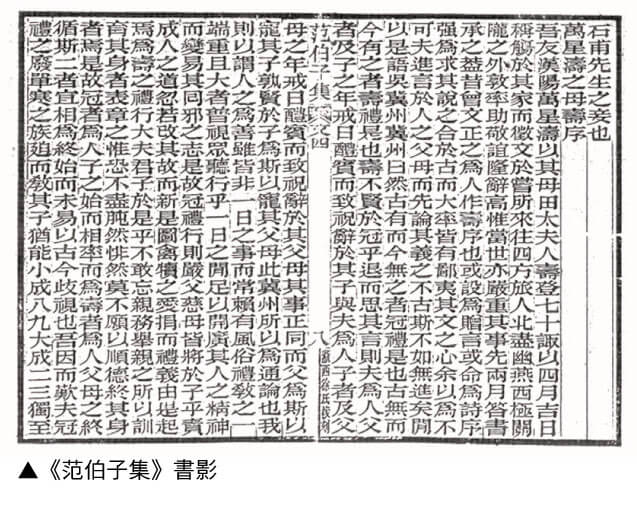 石甫先生之妾也
萬星濤之母壽序
吾友漢陽萬星濤以其母田太夫人壽登七十諏以四月吉日
稱觴於其家而徵文於嘗所來往四方旅人北盡幽燕西極關
隴之外敦率助敬誼隆辭高惟當世亦嚴重其事先兩月答書
承之蓋昔曾文正之為人作壽序也或設為贈言或命為詩序
強為求其說之合於古而大率皆有鄙夷其文之心余以為不
可夫進言於人之父母而先論其義之不古斯不如無進矣閒
以是語吳冀州冀州曰然古有而今無之者冠禮是也古無而
今有之者壽禮是也壽不賢於冠乎退而思其言則夫為人父
者及子之年戒日醴賓而致祝辭於其子與夫為人子者及父
范伯子集 文四 八
母之年戒日醴賓而致祝辭於其父母其事正同而父為斯以
寵其子孰賢於子為斯以寵其父母此冀州所以為通論也我
則以謂人之為善雖皆非一日之事而常賴有風俗禮敎之一
端重且大者晢視眾聽行乎一日之閒足以開廣其人之精神
而變易其同邪之志是故冠禮行則嚴父慈母皆將於子乎責
成人之道忽若改其故而新是圖禽犢之愛捐而禮義由是起
焉為壽之禮行大夫君子於是乎不敢忘親務舉親之所以訓
育其身者表章之惟恐不盡肫然悱然莫不願以順德終其身
者焉是故冠者為人子之始而相率而為壽者為人父母之終
循斯二者宜相為終始而未易以古今歧視也吾因而歎夫冠
禮之廢單寒之族廹而敎其子猶能小成八九大成二三獨至
▲《范伯子集》書影